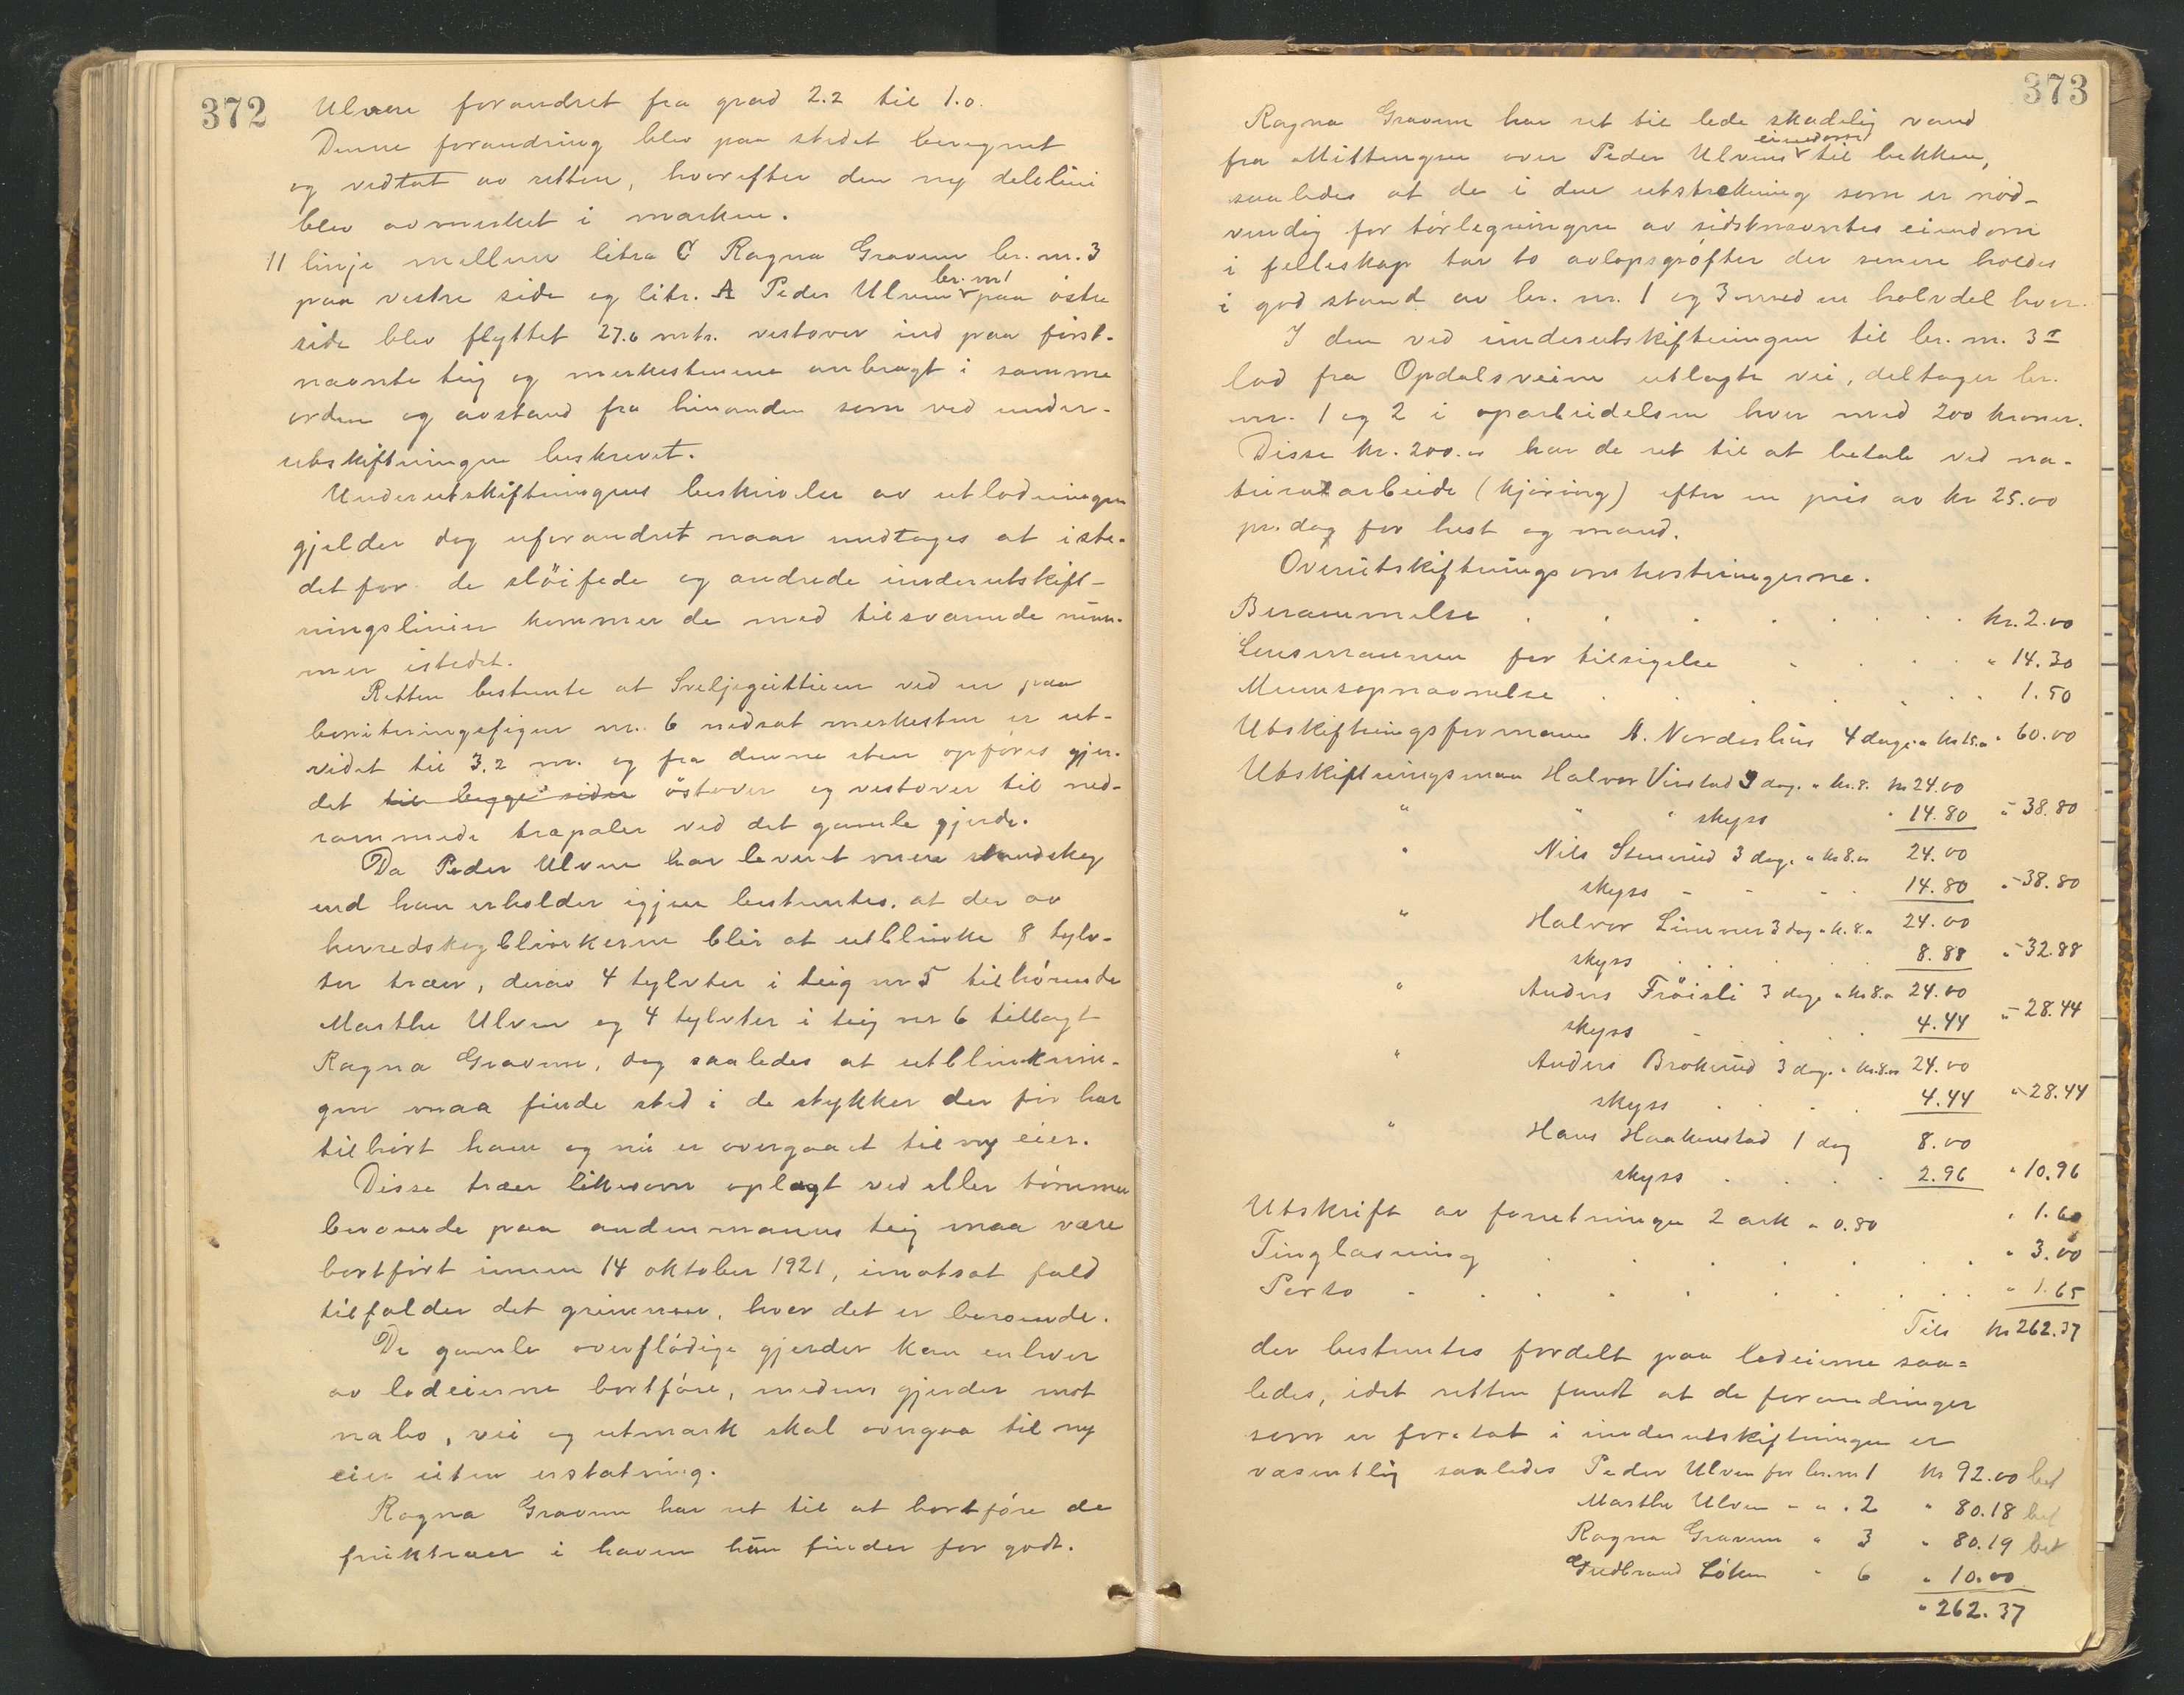 372
Ulven forandret fra grad 2.2 til 1.0.
Denne forandring blev paa stedet beregnet
og vedtat av retten, hvorefter den ny delelini
blev avmerket i marken.
11 linje mellem litra C Ragna Graven br. nr. 3
paa vestre side og litr. A Peder Ulven br. nr 1 paa östre
side blev flyttet 27.6 mtr. vestover ind paa först-
nævnte teig og merkestenene anbragt i samme
orden og avstand fra hinanden som ved under-
utskiftningen beskrevet.
Underutskiftningens beskrivelse av utlodningen
gjelder dog uforandret naar undtages at iste-
detfor de slöifede og andrede underutskift-
ningslinier kommer de med tilsvarende num-
mer istedet.
Retten bestemte at Sveljeguttuen ved en paa
boniteringsfigur nr. 6 nedsat merkesten er ut-
videt til 3.2 m. og fra denne sten opföres gjer-
det til begge sider östover og vestover til ned-
rammede træpæler ved det gamle gjerde.
Da Peder Ulven har levert mere standskog
end han erholder igjen bestemtes, at der av
herredskogblinkerne blir at utblinke 8 tylv-
ter trær, derav 4 tylvter i teig nr 5 tilhörende
Marthe Ulven og 4 tylvter i teig nr 6 tillagt
Ragna Graven, dog saaledes at utblinknin-
gen maa finde sted i de stykker der för har
tilhört ham og nu er overgaaet til ny eier.
Disse trær likesom oplagt ved eller tömmer
beroende paa andenmanns teig maa være
bortfört innen 14 oktober 1921, imotsat fald
tilfalder det grunnen, hvor det er beroende.
De gamle overflödige gjerder kan enhver
av lodeierne bortföre, medens gjerder mot
nabo, vei og utmark skal overgaa til ny
eier uten erstatning.
Ragna Graven har ret til at bortföre de
frukttrær i haven hun finder for godt.
373
Ragna Graven har ret til lede skadelig vand
fra Mittengen over Peder Ulvens eiendom til bekken,
saaledes at de i den utstrekning som er nöd-
vendig for törlegningen av sidstnævntes eiendom
i felleskap tar to avlöpsgröfter der senere holdes
i god stand av br. nr. 1 og 3 med en halvdel hver.
I den ved underutskiftningen til br. nr. 3s
lod fra Opdalsveien utlagte vei, deltager br.
nr. 1 og 2 i oparbeidelsen hver med 200 kroner.
Disse kr. 200.00 har de ret til at betale ved na-
turalarbeide (kjöring) efter en pris av kr 25.00
pr. dag for hest og mand.
Overutskiftningsomkostningerne.
Berammelse . . . . kr. 2.00
Lensmannen for tilsigelse . . . " 14.30
Mennsopnævnelse . . . . 1.50
Utskiftningsformann A. Nerdrehus 4 dage a kr 15.00 " 60.00
Utskiftningsmann Halvor Vinstad 3 dag. a kr. 8. kr 24.00
" " " skyss " 14.80 " 38.80
" Nils Stenerud 3 dage a kr 8.00 24.00
skyss - - - . 14.80 " 38.80
" Halvor Linnerud 3 dag a k. 8.00 24.00
skyss . . . . . 8.88 " 32.88
" Anders Fröisli 3 dage a kr 8.00 24.00
skyss - . . 4.44 " 28.44
" Anders Brökerud 3 dag. a kr. 8.00 24.00
skyss . . . . 4.44 " 28.44
" Hans Haakenstad 1 dag 8.00
skyss . . . . 2.96 " 10.96
Utskrift av forretningen 2 ark a 0.80 " 1.60
Tinglæsning . . . . " 3.00
Porto . . . . " 1.65
Tils kr 262.37
der bestemtes fordelt paa lodeierne saa=
ledes, idet retten fandt at de forandringer
som er foretat i underutskiftningen er
væsentlig saaledes Peder Ulven for br. nr 1 kr 92.00 bet
Marthe Ulven " " " 2 " 80.18 bet
Ragna Graven " 3 " 80.19 bet
Gudbrand Löken " 6 " 10.00
" 262.37